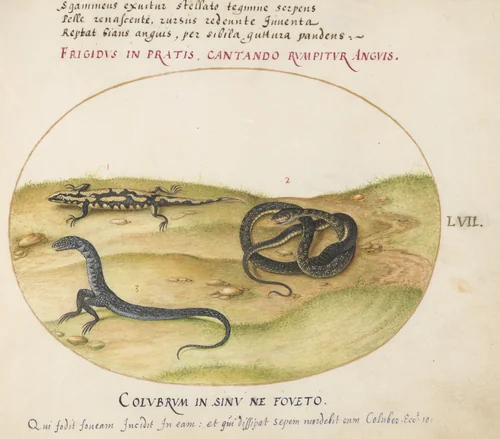 Sqammeus exuitur stellato tegmine serpens
Pelle renascente, rursus redeunte Iuventa
Reptat hians anguis, per sibila guttura pandens:~
FRIGIDVS IN PRATIS, CANTANDO RVMPITVR ANGVIS.
1
2
LVII.
3
COLVBRVM IN SINV NE FOVETO.
Qui fodit foveam Incidit In eam: et qui dissipat sepem mordebit eum Coluber. Eccᵗ 10.